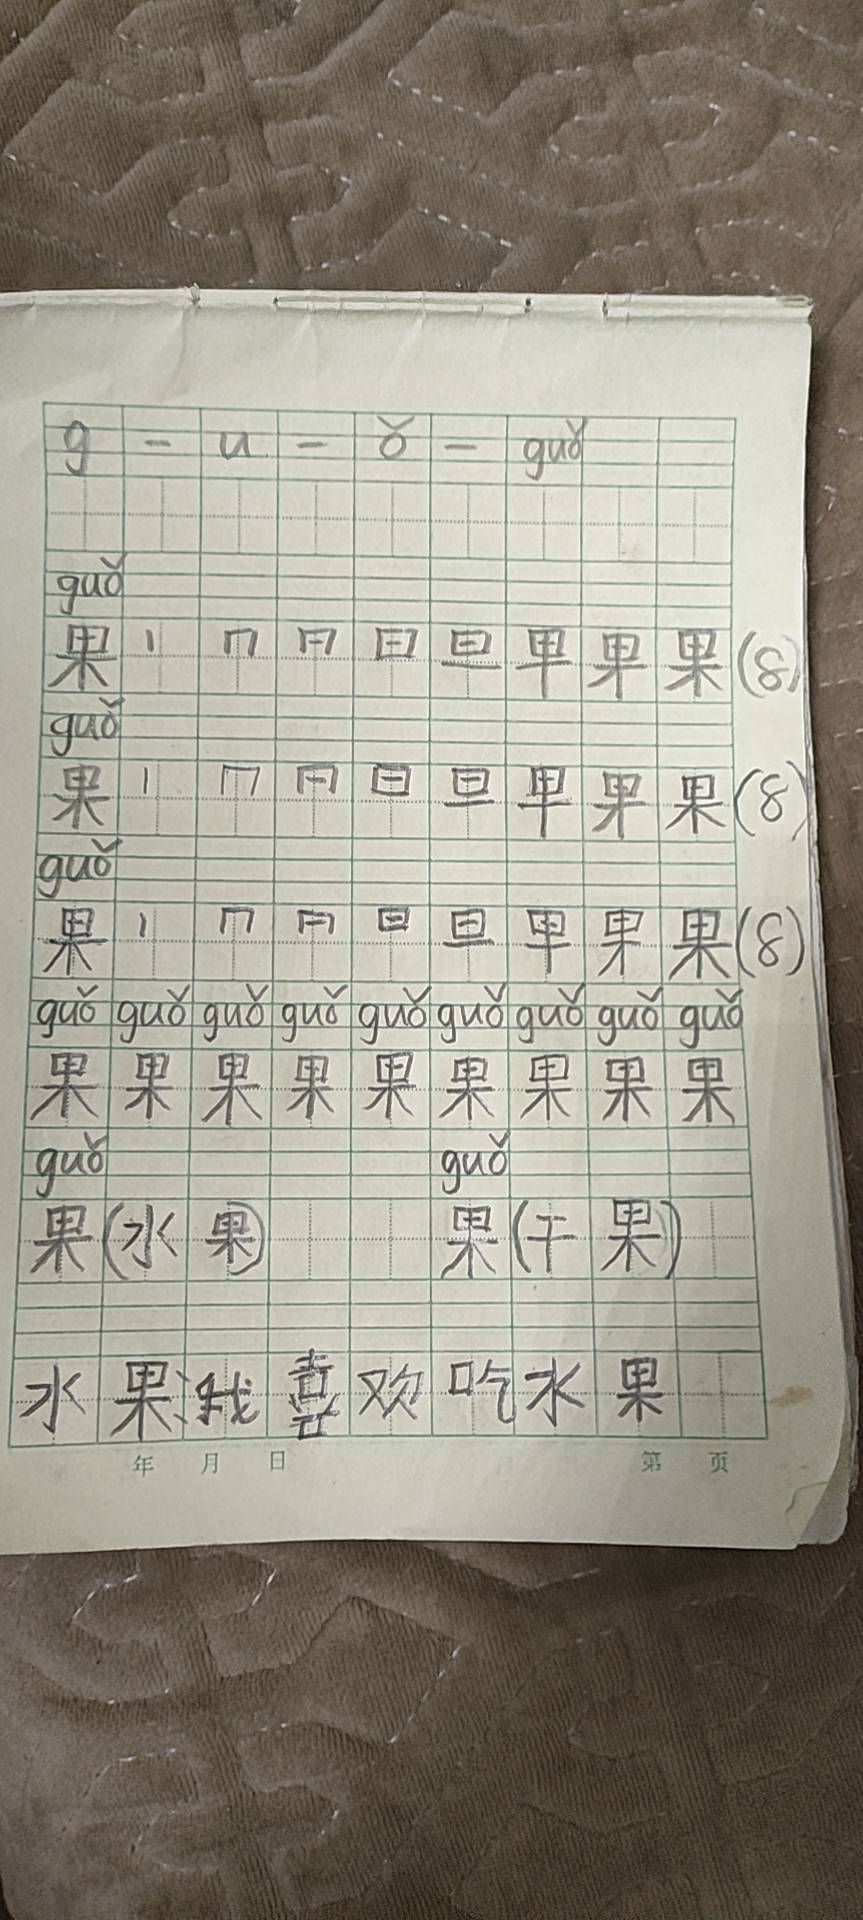 g - u - ǒ - guǒ
guǒ
果 丨 冂 日 日 旦 甲 果 果 (8)
guǒ
果 丨 冂 日 日 旦 甲 果 果 (8)
guǒ
果 丨 冂 日 日 旦 甲 果 果 (8)
guǒ guǒ guǒ guǒ guǒ guǒ guǒ guǒ guǒ
果 果 果 果 果 果 果 果 果
guǒ guǒ
果(水果) 果(干果)
水果:我喜欢吃水果
年 月 日 第 页